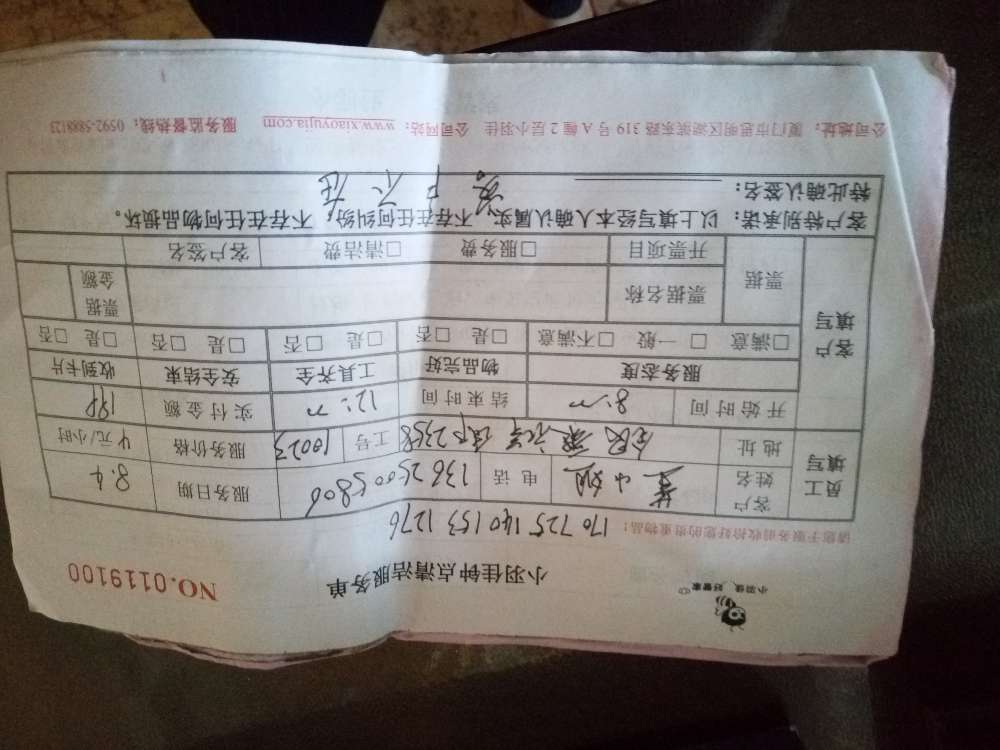 小羽佳 好管家
小羽佳钟点清洁服务单
NO.0119100
请您于服务前收拾好您的贵重物品:
170 725 140 153 1276
员工填写
客户姓名 董小姐 电话 13625005806 服务日期 8.4
地址 工号 10023 服务价格 4元/小时
开始时间 8:00 结束时间 12:00 实付金额
客户填写
服务态度 物品完好 工具齐全 安全结束 收到卡片
□满意 □一般 □不满意 □是 □否 □是 □否 □是 □否 □是 □否
票据 票据名称 票据金额
开票项目 □服务费 □清洁费 客户签名
客户特别承诺: 以上填写经本人确认属实,不存在任何纠纷,不存在任何物品损坏。
特此确认签名: 客户不在
公司地址: 厦门市思明区湖滨东路 319 号 A 幢 2 层小羽佳 公司网站: www.xiaoyujia.com 服务监督热线: 0592-5888123